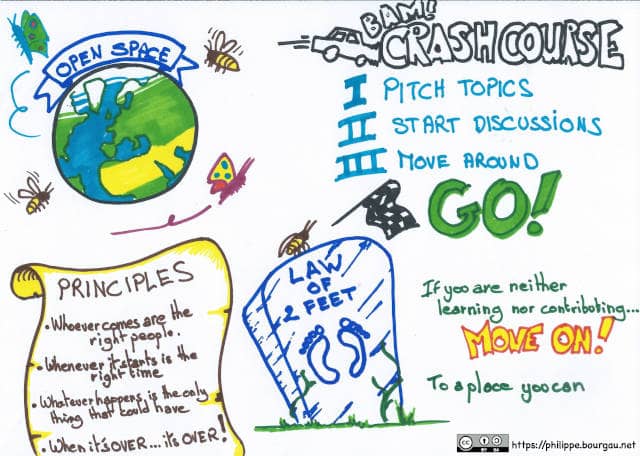 OPEN SPACE
BAM!
CRASH COURSE
I PITCH TOPICS
II START DISCUSSIONS
III MOVE AROUND
GO!
PRINCIPLES
• Whoever comes are the
right people.
• Whenever it starts is the
right time
• Whatever happens is the only
thing that could have
• When it's OVER... it's OVER!
LAW
OF
2 FEET
If you are neither
learning nor contributing...
MOVE ON!
To a place you can
cc BY SA
https://philippe.bourgau.net